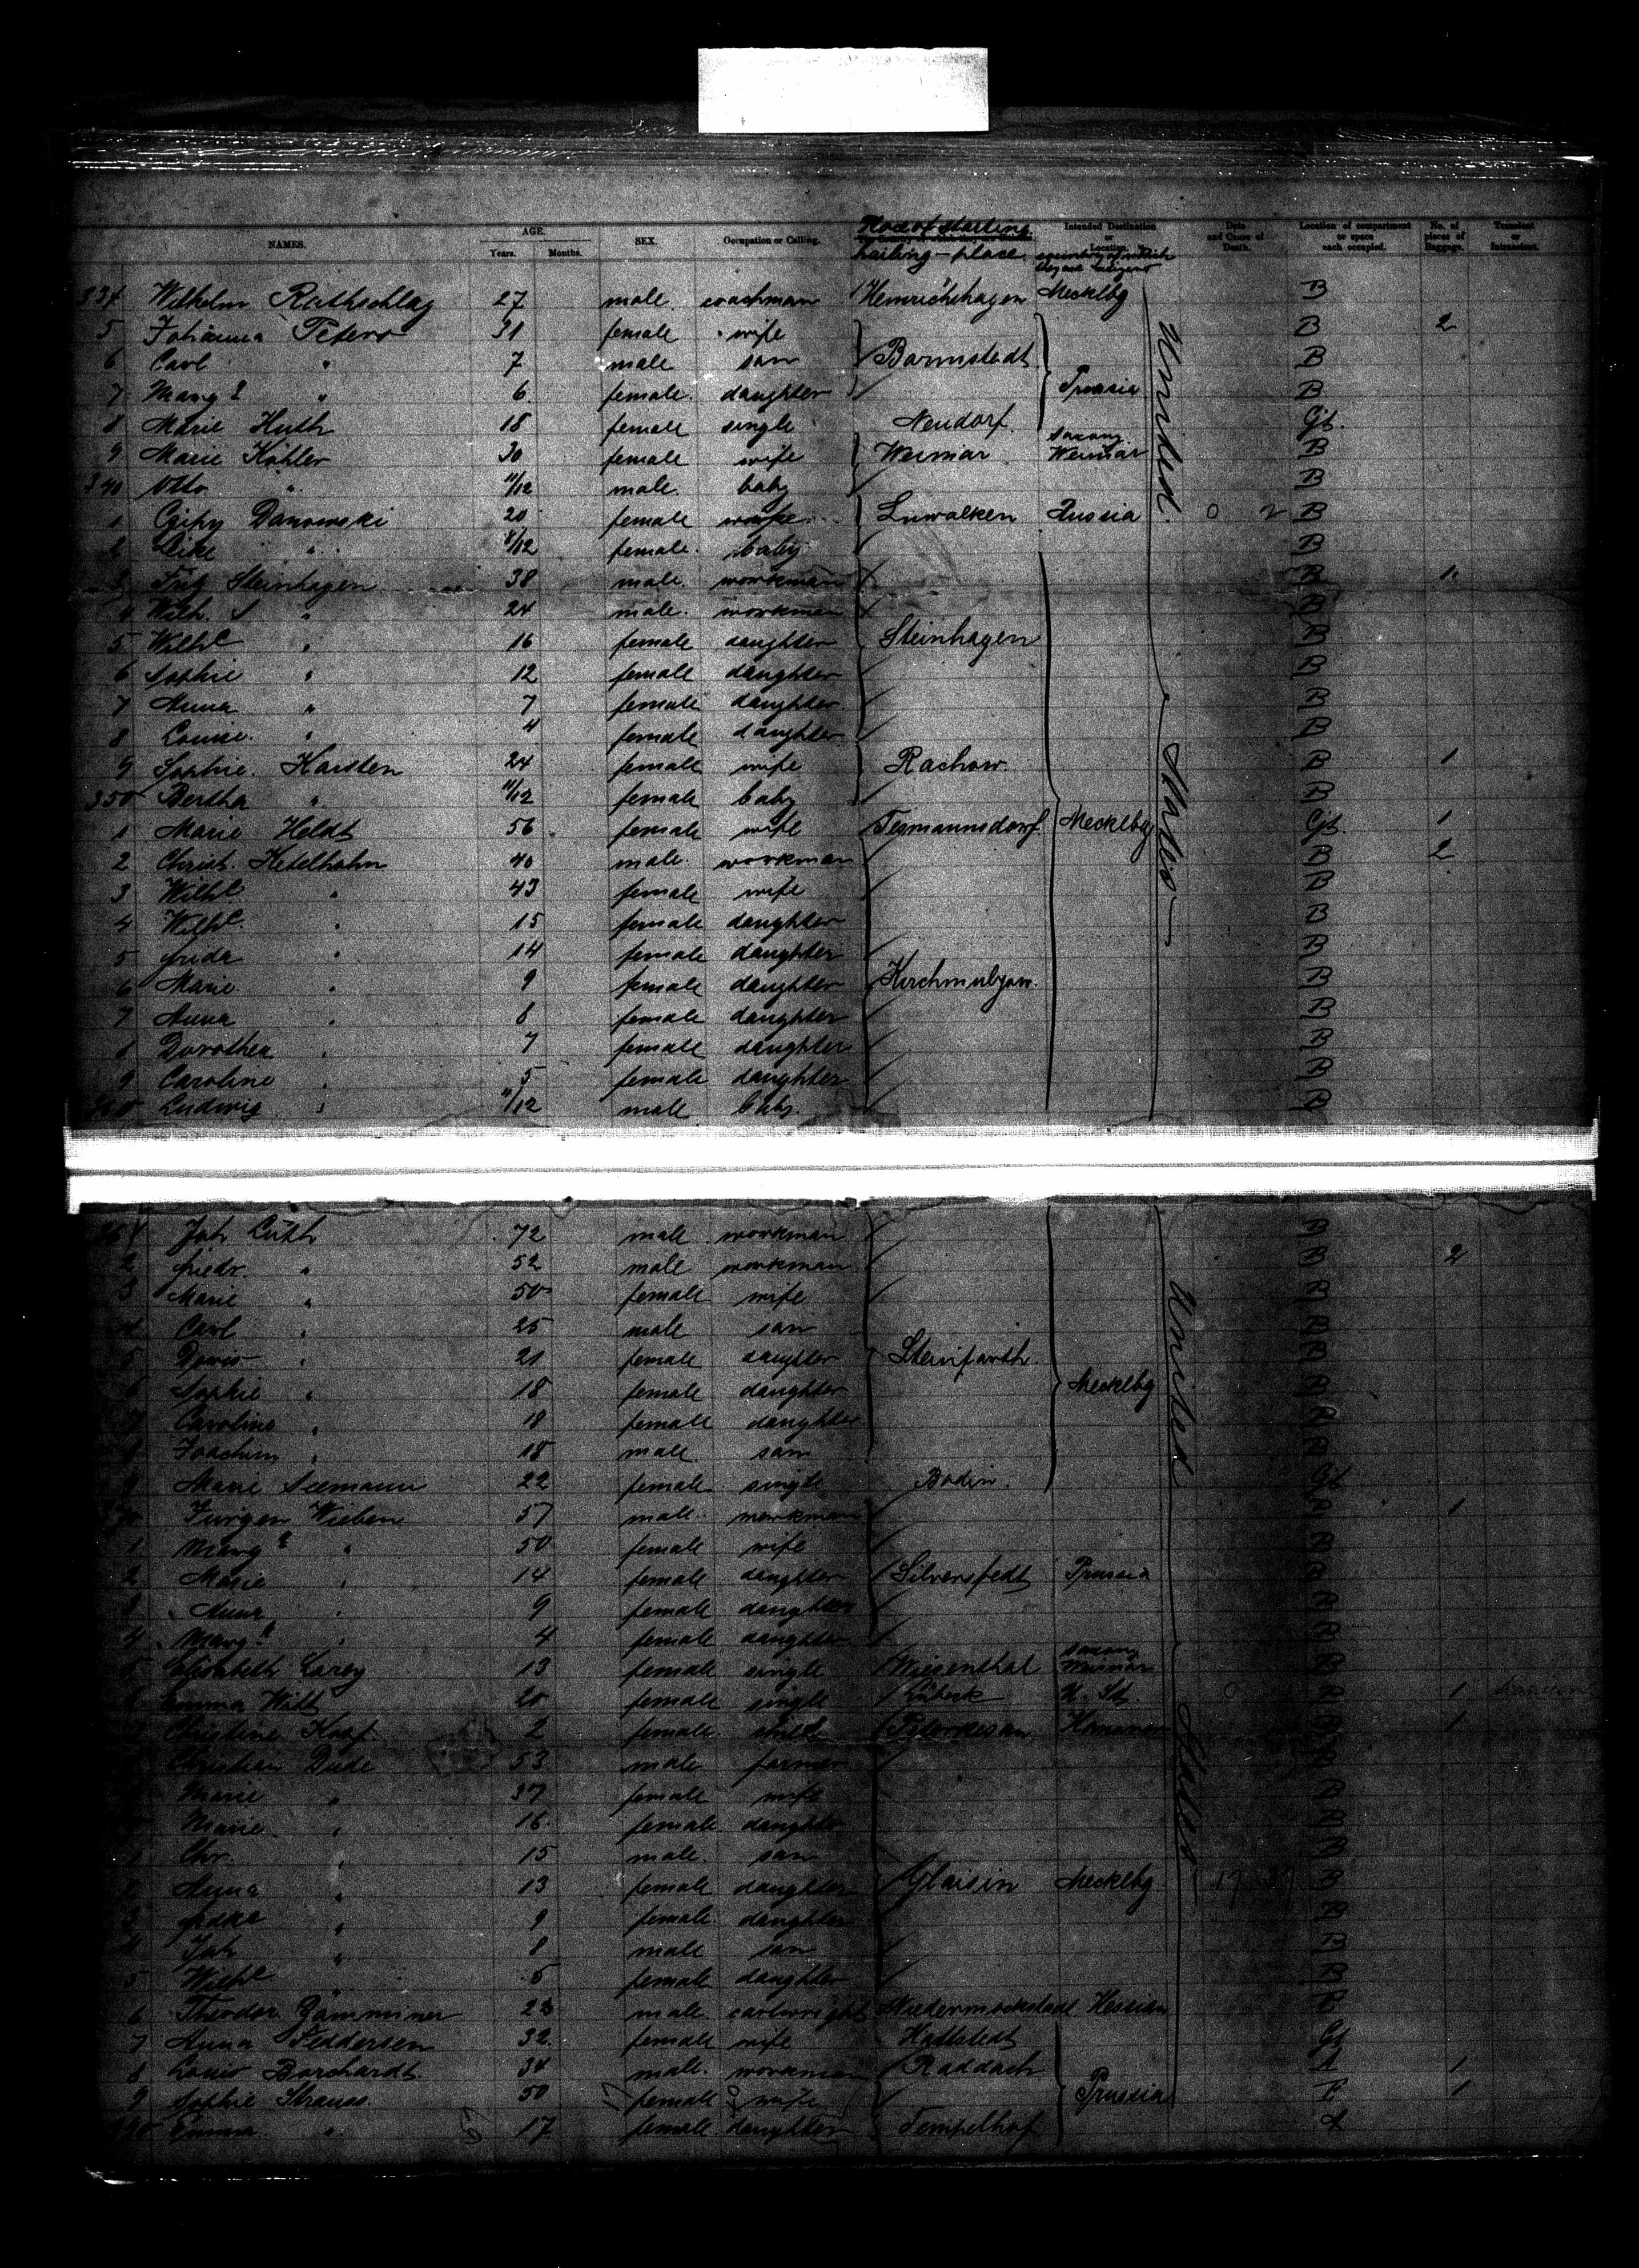 NAMES. AGE. Years. Months. SEX. Occupation or Calling. Place of starting hailing-place. Intended Destination or Location. country of which they are citizens Date and Cause of Death. Location of compartment or space each occupied. No. of pieces of Baggage. Transient or Intransient.
334 Wilhelm Rathschlag 27 male coachman Heinrichshagen Mecklbg B
5 Johanna Peters 31 female wife B 2
6 Carl " 7 male son Barmstedt B
7 Marg. " 6 female daughter Prussia B
8 Marie Huth 18 female single Neudorf Gt.
9 Marie Köhler 30 female wife Weimar Saxony Weimar B
340 Otto " 11/12 male baby B
1 Danowski 20 female Russia B
2 " 8/12 female baby B
3 Fritz Steinhagen 38 male workman B 1
4 Wilh. " 24 male workman B
5 Wilhe " 16 female daughter Steinhagen B
6 Sophie " 12 female daughter B
7 Anna " 7 female daughter B
8 Louise " 4 female daughter B
9 Sophie Karsten 24 female wife Rachow B 1
350 Bertha " 11/12 female baby B
1 Marie Heldt 56 female wife Mecklbg Gt 1
2 Christ. Ketelhohn 40 male workman B 2
3 Wilhe " 43 female wife B
4 Wilhe " 15 female daughter B
5 Frida " 14 female daughter B
6 Marie " 9 female daughter B
7 Anna " 8 female daughter B
8 Dorothea " 7 female daughter B
9 Caroline " 5 female daughter B
360 Ludwig " 11/12 male baby B
United States
361 Joh Lüth 72 male workman B
2 Friedr. " 52 male workman B 2
3 Marie " 50 female wife B
4 Carl " 25 male son B
5 Doris " 21 female daughter Steinforth B
6 Sophie " 18 female daughter Mecklbg B
7 Caroline " 18 female daughter B
8 Joachim " 18 male son B
9 Marie Seemann 22 female single Bodin Gt
370 Jürgen Wieben 57 male workman B 1
1 Marg. " 50 female wife B
2 Marie " 14 female daughter Silverstedt Prussia B
3 Anna " 9 female daughter B
4 Marg. " 4 female daughter B
5 Elisabeth 13 female single Wiesenthal Saxony Weimar B
6 Emma Witt 20 female single Lübeck U. St. B 1
7 Christine 2 female child B 1
Christian Dude 53 male farmer B
Marie " 37 female wife B
Marie " 16 female daughter B
1 Chr. " 15 male son B
2 Anna " 13 female daughter Glaisin Mecklbg B
3 " 9 female daughter B
4 Joh " 8 male son B
5 Wilhe " 5 female daughter B
6 Theodor 23 male cartwright Niedermockstadt Hessian B
7 Anna Feddersen 32 female wife Hattstedt Gt
8 Louis Borchardt 34 male workman Raddach 1
9 Sophie Strauss 50 female wife Prussia 1
390 Emma " 17 female daughter Tempelhof
United States